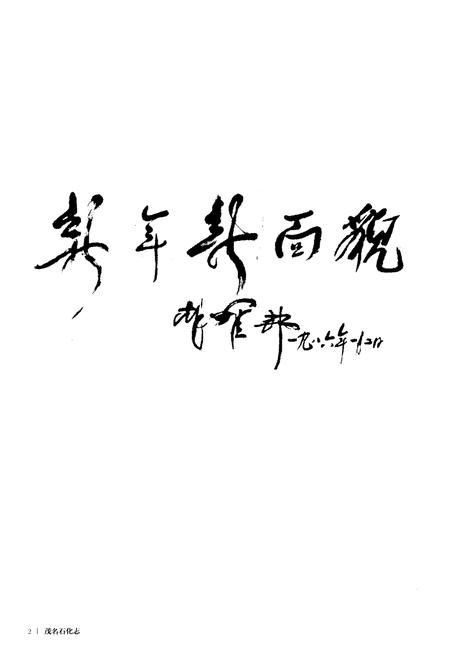 新年新面貌
费彝民 一九八六年一月二日
2 | 茂名石化志